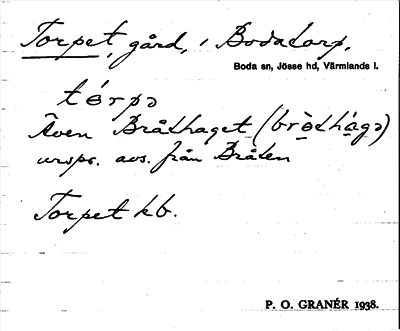 Torpet, gård, i Bodatorp,
Boda sn, Jösse hd, Värmlands l.
tórpə
Även Bråthaget (brὸthágə)
urspr. avs. från Bråten
Torpet kb.
P. O. GRANÉR 1938.